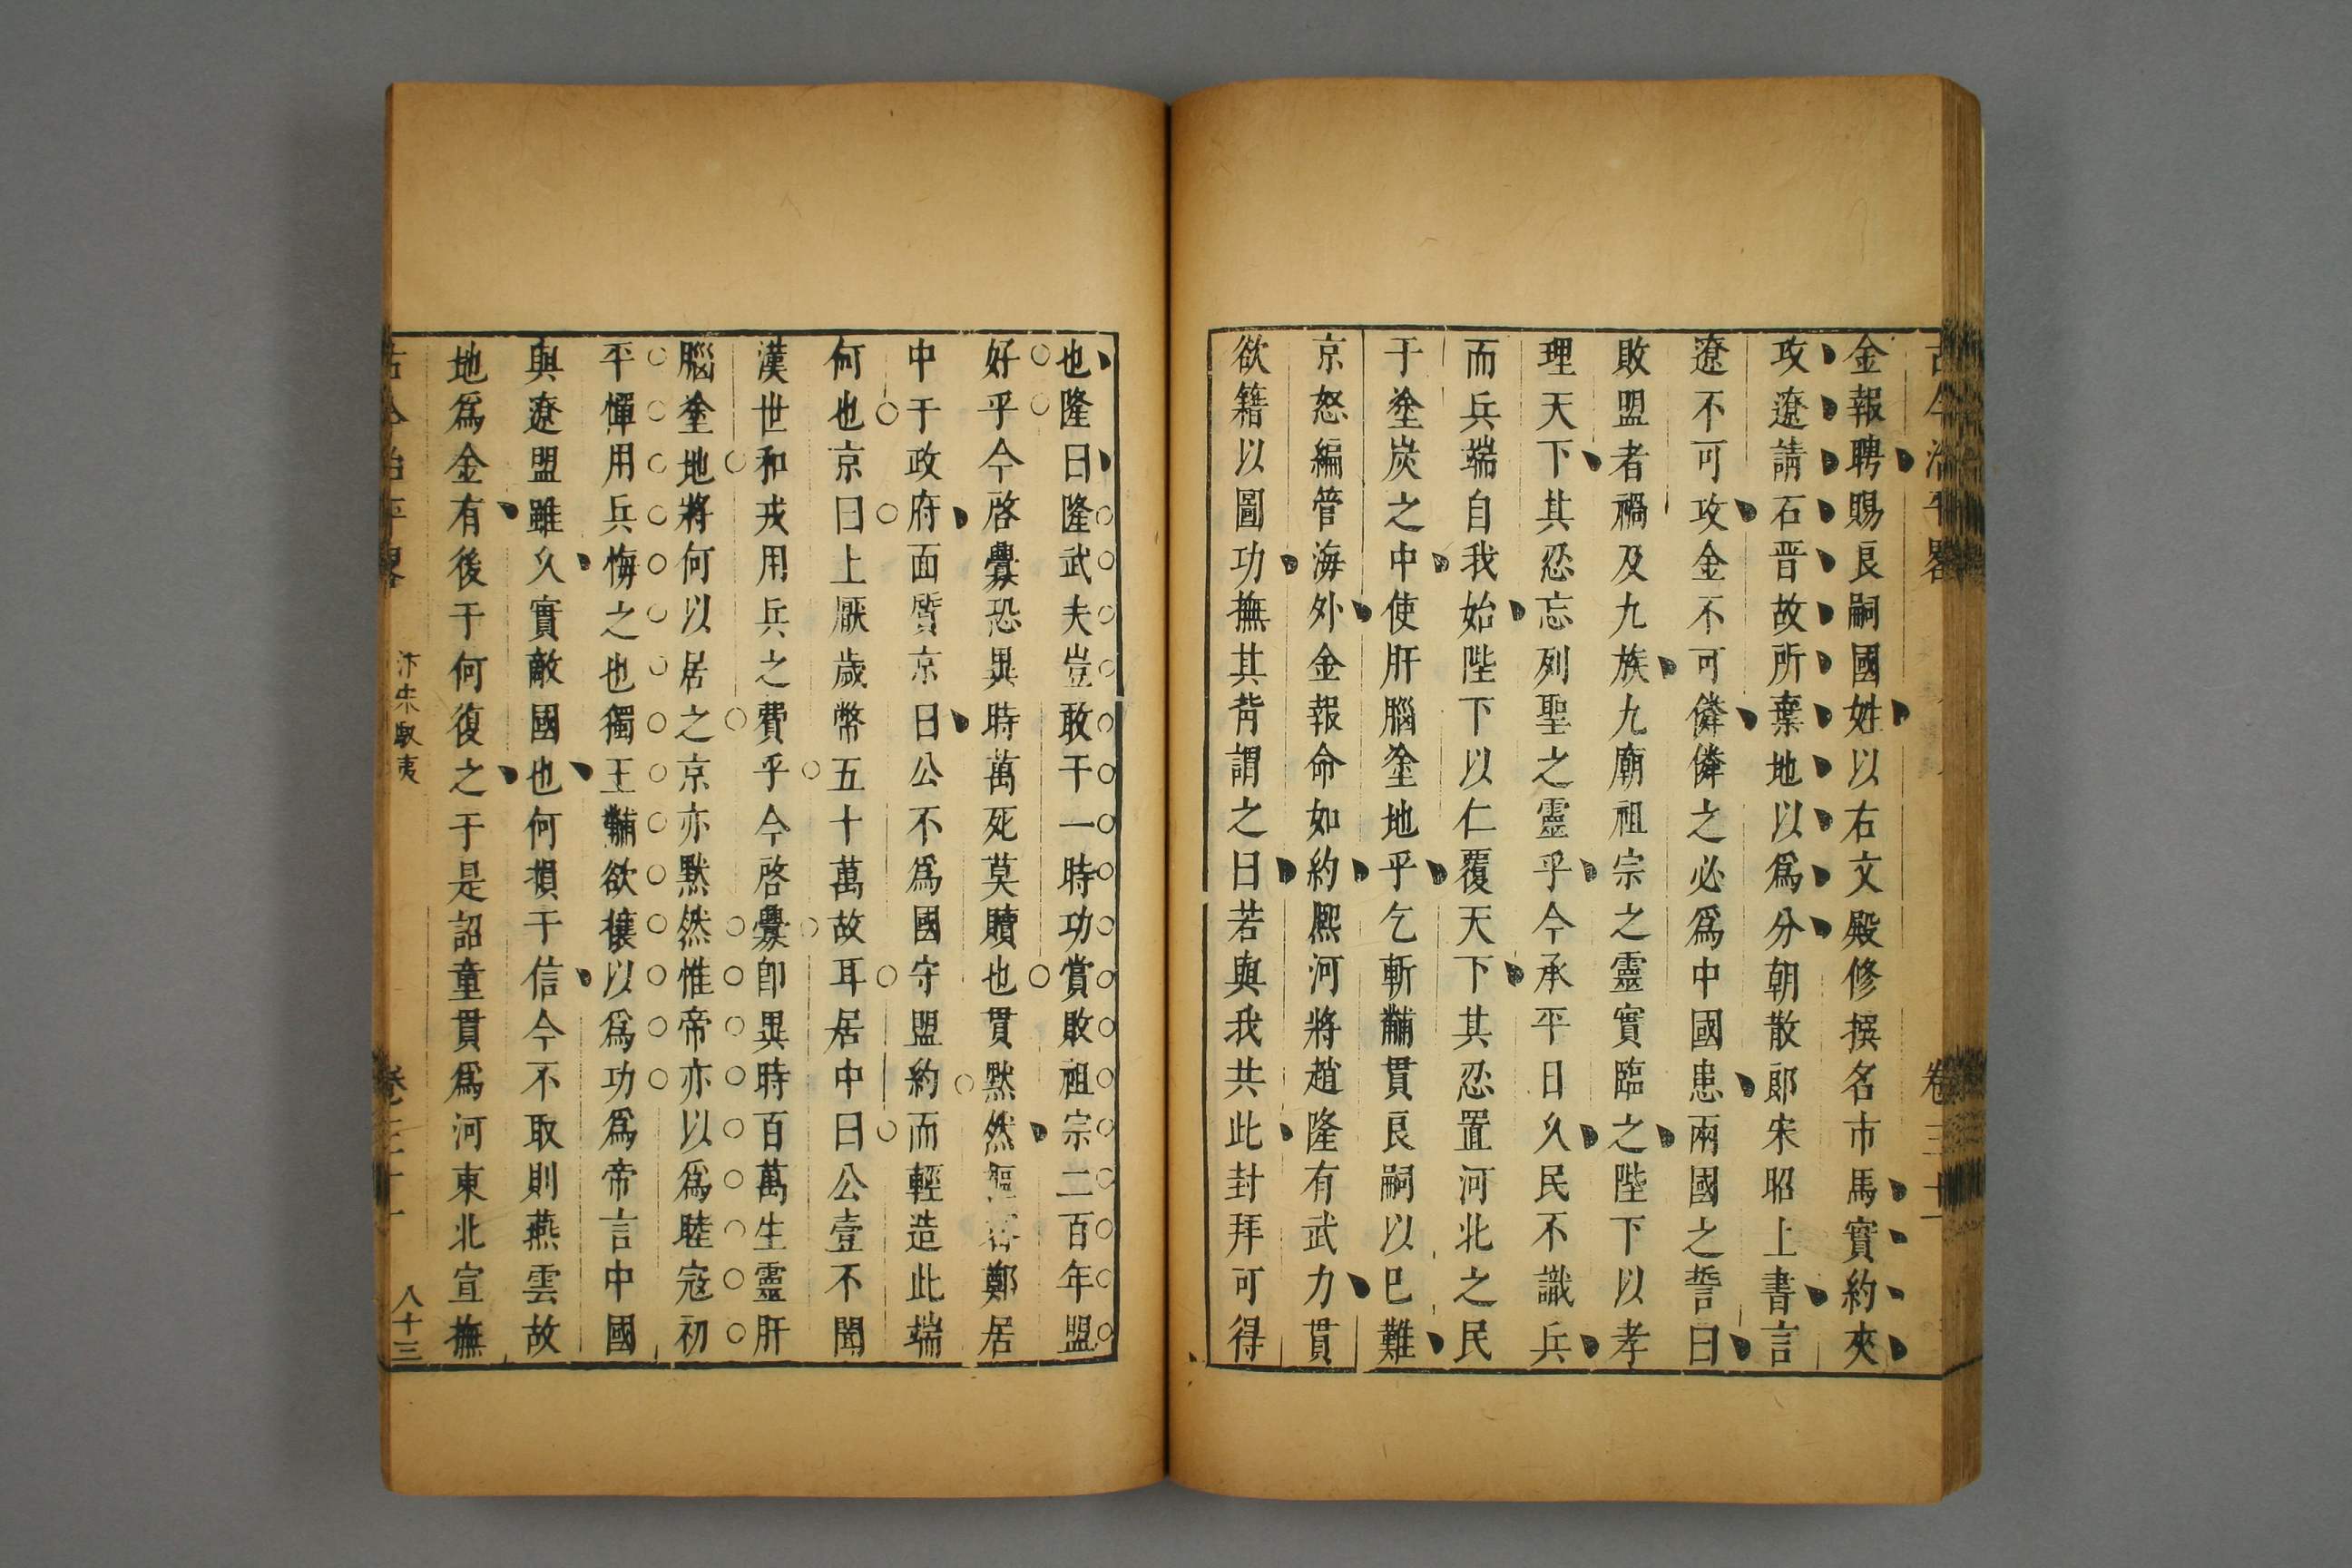 古今治平畧 卷三十一
金報聘賜良嗣國姓以右文殿修撰名市馬實約夾
攻遼請石晋故所棄地以爲分朝散郎宋昭上書言
遼不可攻金不可隣隣之必爲中國患兩國之誓曰
敗盟者禍及九族九廟祖宗之靈實臨之陛下以孝
理天下其忍忘列聖之靈乎今承平日久民不識兵
而兵端自我始陛下以仁覆天下其忍置河北之民
于塗炭之中使肝腦塗地乎乞斬黼貫良嗣以巳難
京怒編管海外金報命如約熈河將趙隆有武力貫
欲籍以圖功撫其背謂之曰若與我共此封拜可得
也隆曰隆武夫豈敢干一時功賞敗祖宗二百年盟
好乎今啓釁恐異時萬死莫贖也貫默然 鄭居
中于政府面質京曰公不爲國守盟約而輕造此端
何也京曰上厭歲幣五十萬故耳居中曰公壹不聞
漢世和戎用兵之費乎今啓釁卽異時百萬生靈肝
腦塗地將何以居之京亦默然惟帝亦以爲睦寇初
平憚用兵悔之也獨王黼欲攘以爲功爲帝言中國
與遼盟雖久實敵國也何損于信今不取則燕雲故
地爲金有後于何復之于是詔童貫爲河東北宣撫
古今治平畧 汴宋馭夷 卷三十一 八十三